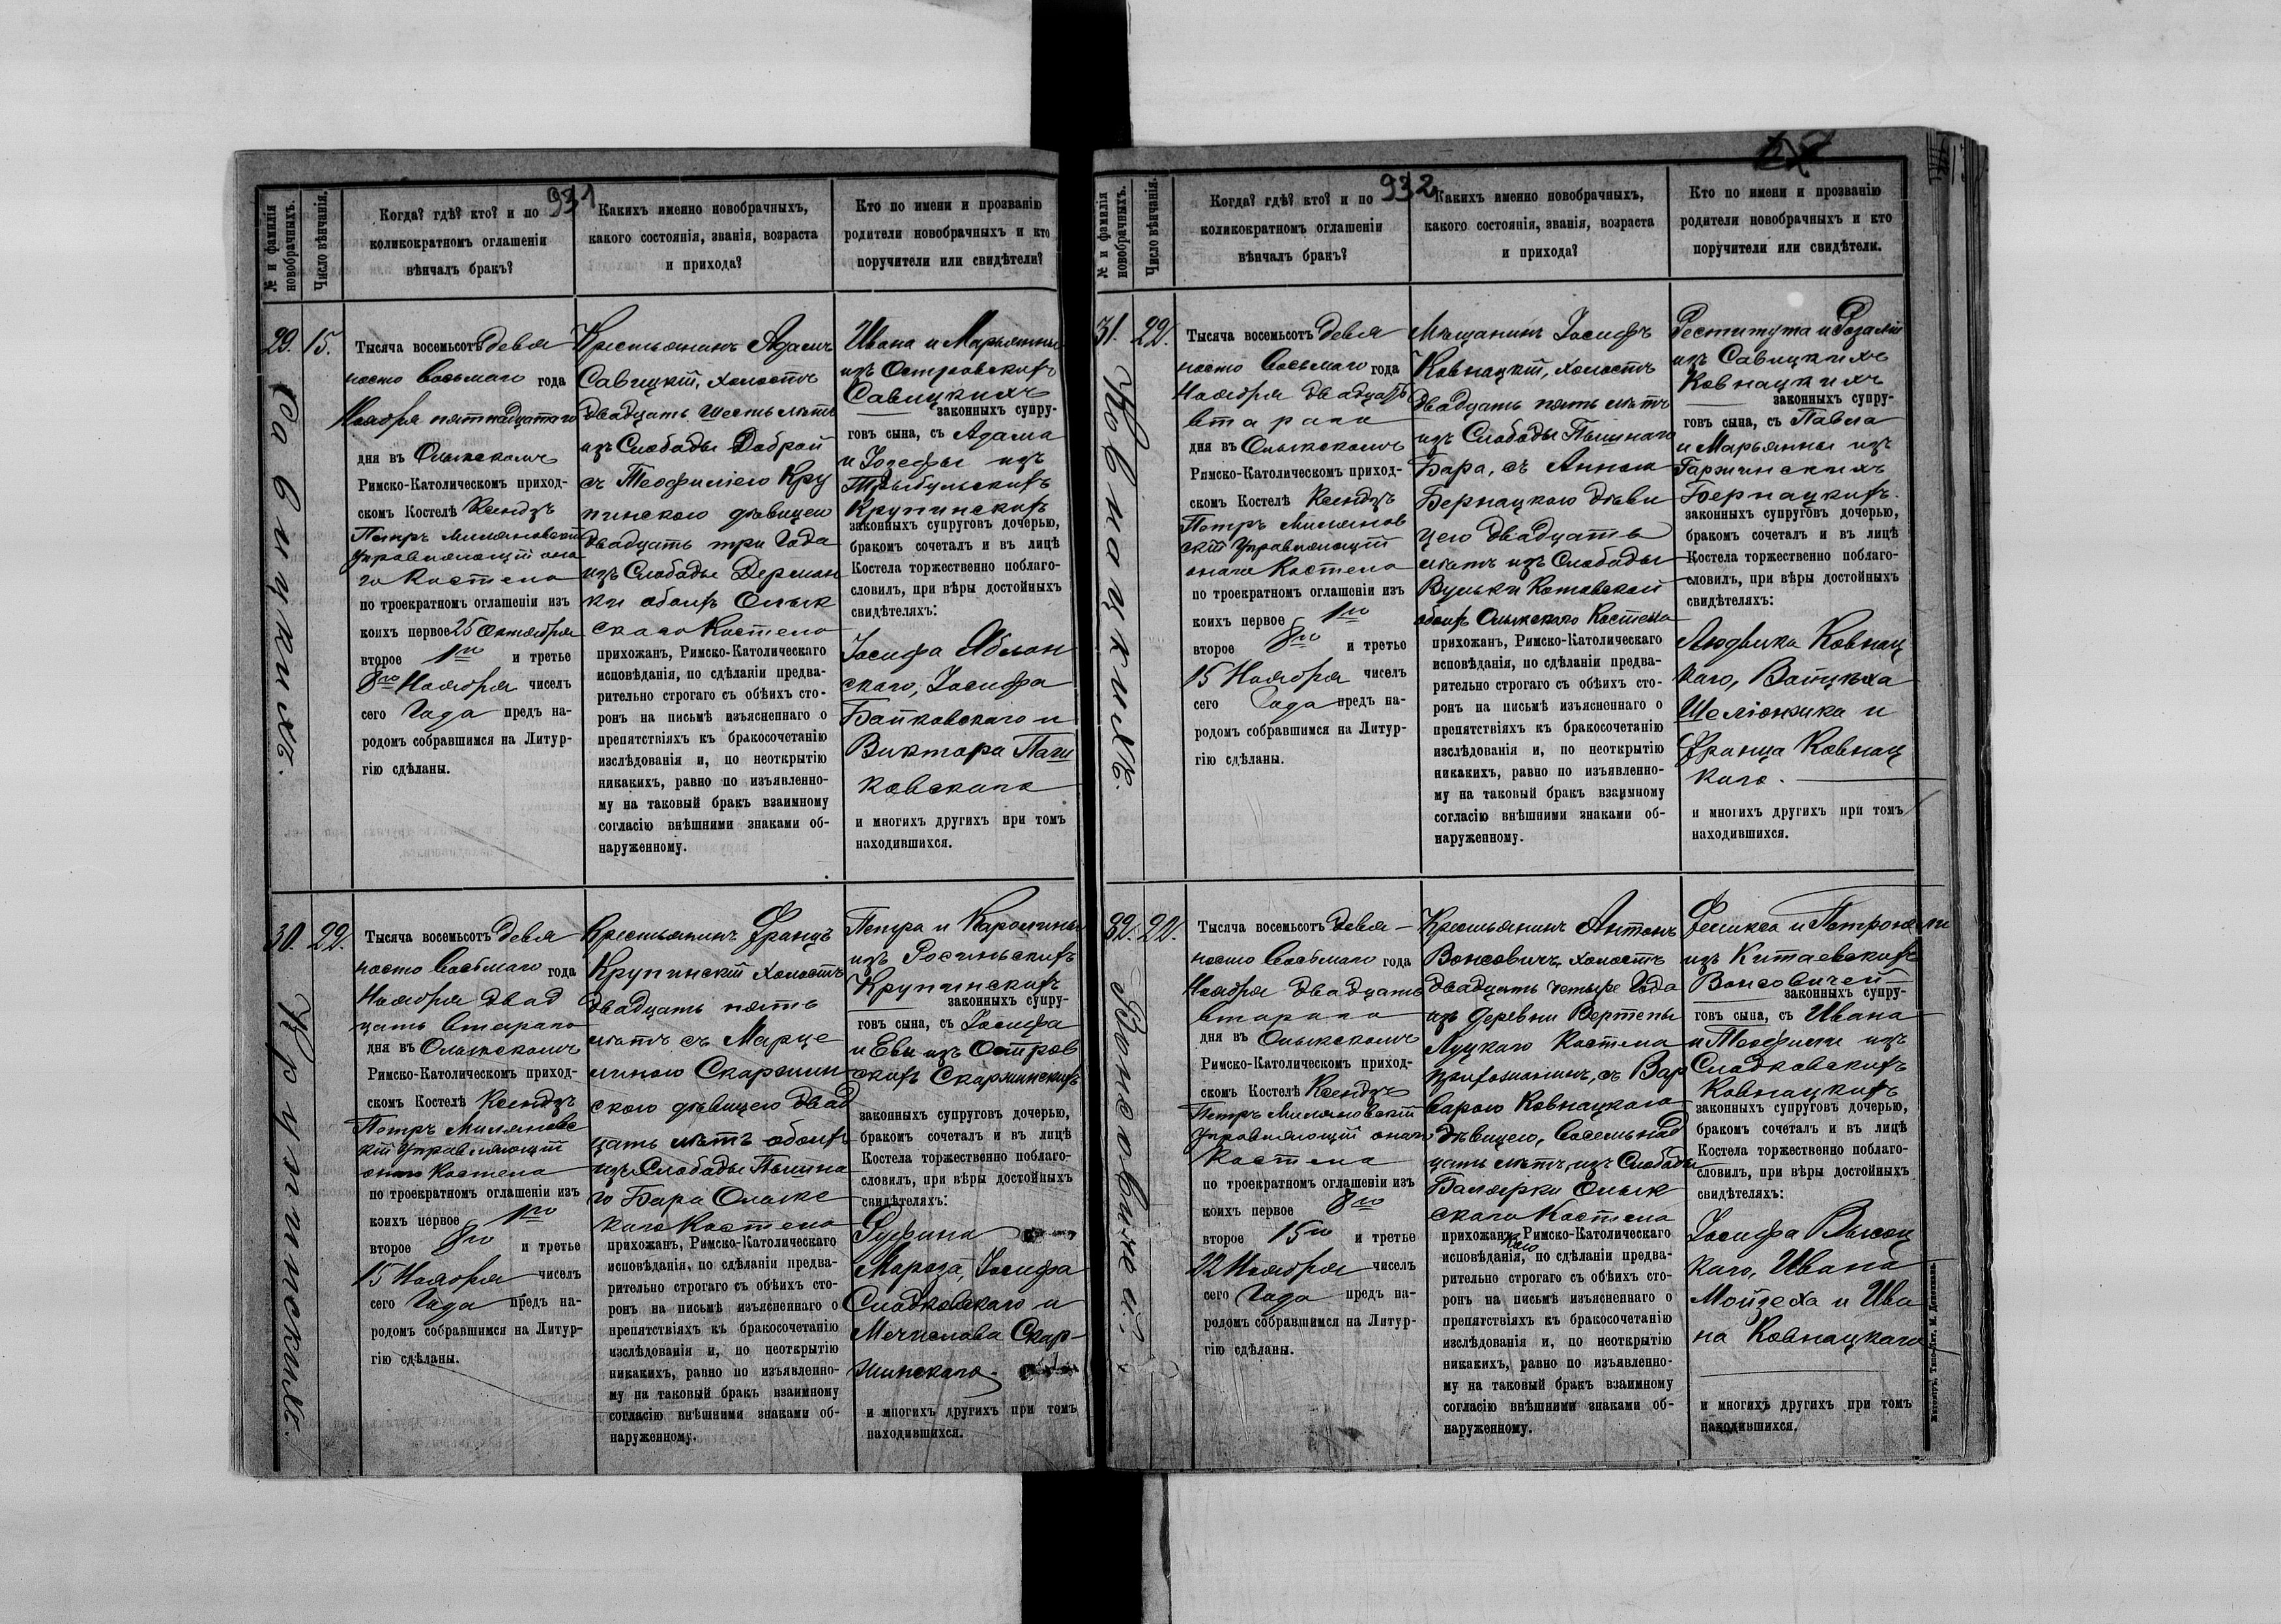 931
№ и фамилія
новобрачныхъ.
Число вѣнчанія.
Когда? гдѣ? кто? и по
коликократномъ оглашеніи
вѣнчалъ бракъ?
Какихъ именно новобрачныхъ,
какого состоянія, званія, возраста
и прихода?
Кто по имени и прозванію
родители новобрачныхъ и кто
поручители или свидѣтели?
29.
Савицкихъ.
15.
Тысяча восемьсотъ девя
носто восьмаго года
Ноября пятнадцатаго
дня въ Олыкскомъ
Римско-Католическомъ приход-
скомъ Костелѣ Ксендзъ
Петръ Миляновскій
Управляющій она
го Костела
по троекратномъ оглашеніи изъ
коихъ первое 25 Октября
второе 1го и третье
8го Ноября чиселъ
сего Года предъ на-
родомъ собравшимся на Литур-
гію сдѣланы.
Крестьянинъ Адамъ
Савицкій, холостъ
двадцать шесть лѣтъ
изъ Слободы Доброй
съ Теофиліею Кру
пинскою дѣвицею
двадцать три Года
изъ Слободы Дерман
ки обоихъ Олык
скаго Костела
прихожанъ, Римско-Католическаго
исповѣданія, по сдѣланіи предва-
рительно строгаго съ обѣихъ сто-
ронъ на письмѣ изъясненнаго о
препятствіяхъ къ бракосочетанію
изслѣдованія и, по неоткрытію
никакихъ, равно по изъявленно-
му на таковый бракъ взаимному
согласію внѣшними знаками об-
наруженному.
Ивана и Марьянны
изъ Островскихъ
Савицкихъ
законныхъ супру-
говъ сына, съ Адама
и Іозефы изъ
Трыбульскихъ
Крупинскихъ
законныхъ супруговъ дочерью,
бракомъ сочеталъ и въ лицѣ
Костела торжественно поблаго-
словилъ, при вѣры достойныхъ
свидѣтеляхъ:
Іосифа Яблон
скаго, Іосифа
Байковскаго и
Виктора Паш
ковскаго
и многихъ другихъ при томъ
находившихся.
30.
Крупинскихъ.
22.
Тысяча восемьсотъ девя
носто восьмаго года
Ноября двад
цать втораго
дня въ Олыкскомъ
Римско-Католическомъ приход-
скомъ Костелѣ Ксендзъ
Петръ Милановс
кій Управляющій
онаго Костела
по троекратномъ оглашеніи изъ
коихъ первое 1го
второе 8го и третье
15 Ноября чиселъ
сего Года предъ на-
родомъ собравшимся на Литур-
гію сдѣланы.
Крестьянинъ Францъ
Крупинскій холостъ
двадцать пять
лѣтъ съ Марце
линою Скаржин
скою дѣвицею двад
цать лѣтъ обоихъ
изъ Слободы Пышна
го Бара Олыкс
каго Костела
прихожанъ, Римско-Католическаго
исповѣданія, по сдѣланіи предва-
рительно строгаго съ обѣихъ сто-
ронъ на письмѣ изъясненнаго о
препятствіяхъ къ бракосочетанію
изслѣдованія и, по неоткрытію
никакихъ, равно по изъявленно-
му на таковый бракъ взаимному
согласію внѣшними знаками об-
наруженному.
Петра и Каролины
изъ Росиньскихъ
Крупинскихъ
законныхъ супру-
говъ сына, съ Іосифа
и Евы изъ Островс
скихъ Скаржинскихъ
законныхъ супруговъ дочерью,
бракомъ сочеталъ и въ лицѣ
Костела торжественно поблаго-
словилъ, при вѣры достойныхъ
свидѣтеляхъ:
Руфина
Мороза, Іосифа
Сладковскаго и
Мечислава Скар-
жинскаго.
и многихъ другихъ при томъ
находившихся.
932
№ и фамилія
новобрачныхъ.
Число вѣнчанія.
Когда? гдѣ? кто? и по
коликократномъ оглашеніи
вѣнчалъ бракъ?
Какихъ именно новобрачныхъ,
какого состоянія, званія, возраста
и прихода?
Кто по имени и прозванію
родители новобрачныхъ и кто
поручители или свидѣтели.
31.
Ковнацкихъ.
22.
Тысяча восемьсотъ девя
носто восьмаго года
Ноября двадцать
втараго
дня въ Олыкскомъ
Римско-Католическомъ приход-
скомъ Костелѣ Ксендзъ
Петръ Милянов
скій Управляющій
онаго Костела
по троекратномъ оглашеніи изъ
коихъ первое 1го
второе 8го и третье
15 Ноября чиселъ
сего Года предъ на-
родомъ собравшимся на Литур-
гію сдѣланы.
Мѣщанинъ Іосифъ
Ковнацкій, холостъ
двадцать пять лѣтъ
изъ Слободы Пышнаго
Бара, съ Анною
Бернацкою дѣви
цею двадцать
лѣтъ изъ Слободы
Вульки Котовской
обоихъ Олыкскаго Костела
прихожанъ, Римско-Католическаго
исповѣданія, по сдѣланіи предва-
рительно строгаго съ обѣихъ сто-
ронъ на письмѣ изъясненнаго о
препятствіяхъ къ бракосочетанію
изслѣдованія и, по неоткрытію
никакихъ, равно по изъявленно-
му на таковый бракъ взаимному
согласію внѣшними знаками об-
наруженному.
Реститута и Розаліи
изъ Савицкихъ
Ковнацкихъ
законныхъ супру-
говъ сына, съ Павла
и Марьянны изъ
Гаржинскихъ
Бернацкихъ.
законныхъ супруговъ дочерью,
бракомъ сочеталъ и въ лицѣ
Костела торжественно поблаго-
словилъ, при вѣры достойныхъ
свидѣтеляхъ:
Людвика Ковнац
каго, Войцѣха
Шеліонжика и
Франца Ковнац
каго.
и многихъ другихъ при томъ
находившихся.
32.
Вонсовичей.
22.
Тысяча восемьсотъ девя-
носто восьмаго года
Ноября двадцать
втораго
дня въ Олыкскомъ
Римско-Католическомъ приход-
скомъ Костелѣ Ксендзъ
Петръ Миляновскій
Управляющій онаго
Костела
по троекратномъ оглашеніи изъ
коихъ первое 8го
второе 15го и третье
22 Ноября чиселъ
сего Года предъ на-
родомъ собравшимся на Литур-
гію сдѣланы.
Крестьянинъ Антонъ
Вонсовичъ, холостъ
двадцать четыре Года
изъ деревни Вертепы
Луцкаго Костела
прихожанинъ, съ Вар
варою Ковнацкою
дѣвицею, восемьнад
цать лѣтъ, изъ Слободы
Балярки Олык
скаго Костела
прихожанкою Римско-Католическаго
исповѣданія, по сдѣланіи предва-
рительно строгаго съ обѣихъ сто-
ронъ на письмѣ изъясненнаго о
препятствіяхъ къ бракосочетанію
изслѣдованія и, по неоткрытію
никакихъ, равно по изъявленно-
му на таковый бракъ взаимному
согласію внѣшними знаками об-
наруженному.
Феликса и Петронели
изъ Китаевскихъ
Вонсовичей
законныхъ супру-
говъ сына, съ Ивана
и Теофили изъ
Сладковскихъ
Ковнацкихъ
законныхъ супруговъ дочерью,
бракомъ сочеталъ и въ лицѣ
Костела торжественно поблаго-
словилъ, при вѣры достойныхъ
свидѣтеляхъ:
Іосифа Высоц
каго, Ивана
Мойзеха и Ива
на Ковнацкаго
и многихъ другихъ при томъ
находившихся.